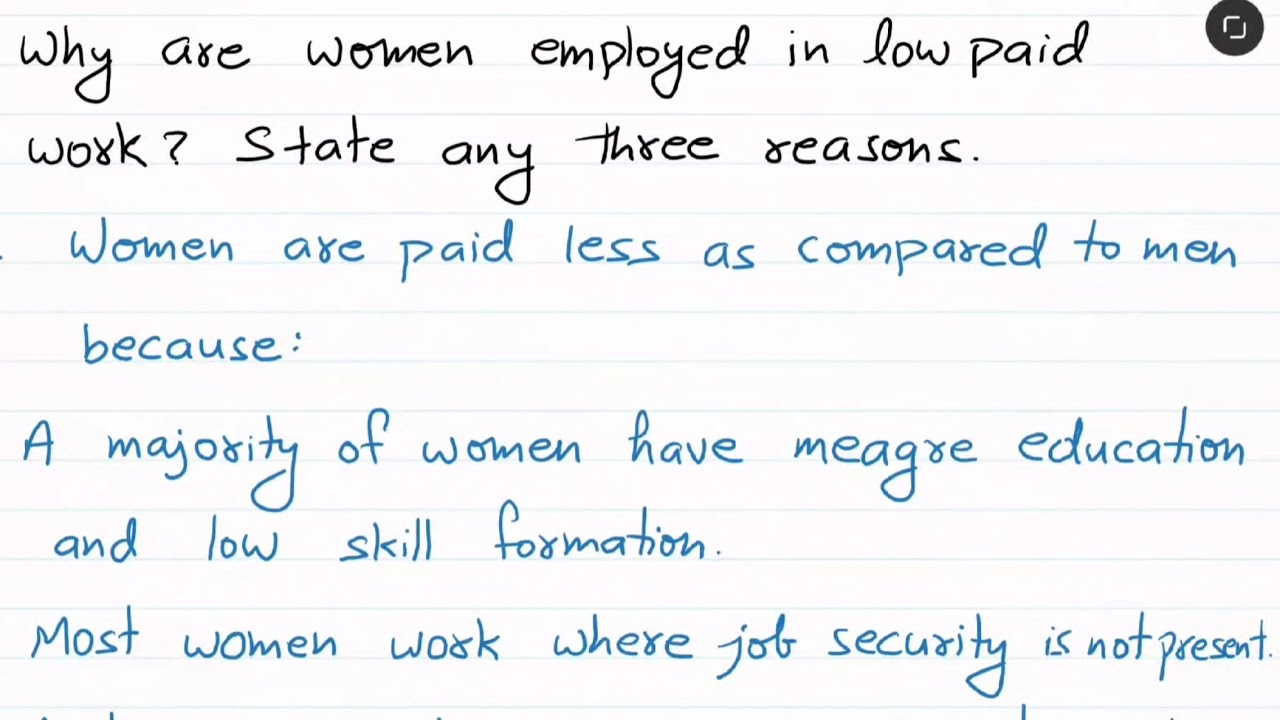 Why are women employed in low paid
work? State any three reasons.
Women are paid less as compared to men
because:
A majority of women have meagre education
and low skill formation.
Most women work where job security is not present.